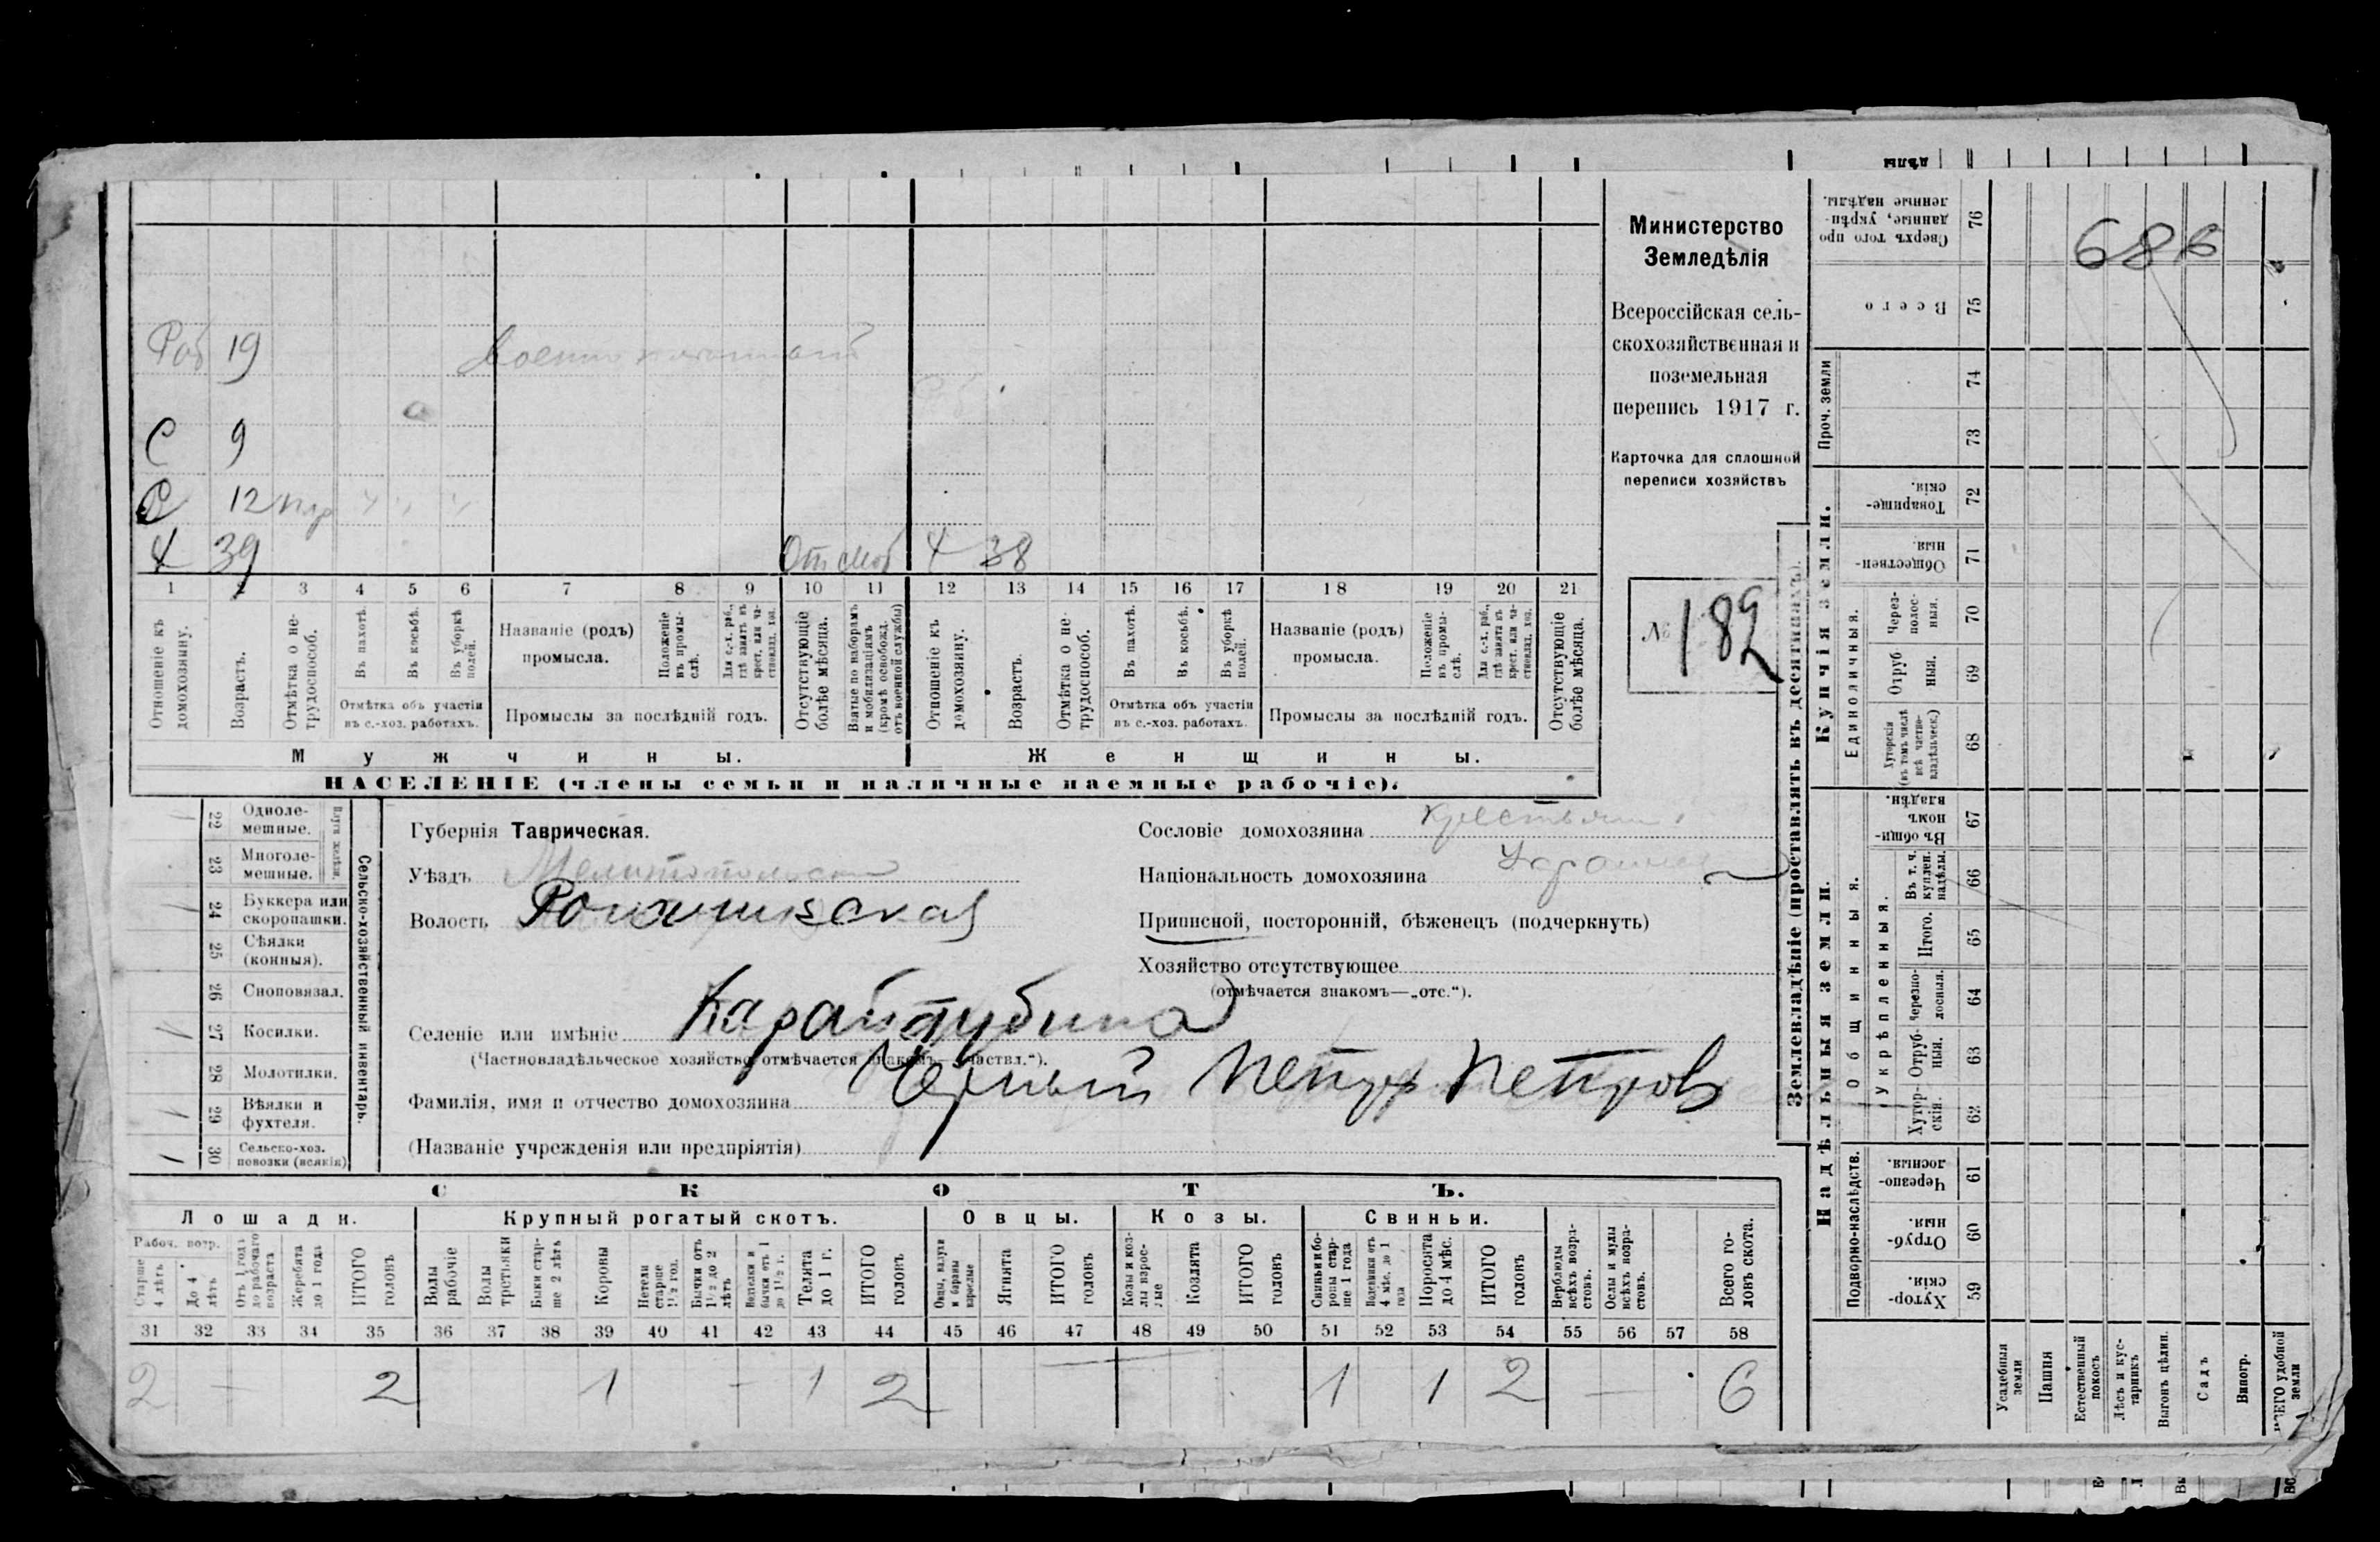 Роб 19 военнопленный
С 9
С 12 п/р
Х 39 Отс моб Х 38
1 2 3 4 5 6 7 8 9 10 11 12 13 14 15 16 17 18 19 20 21
Отношеніе къ домохозяину.
Возрастъ.
Отмѣтка о нетрудоспособ.
Въ пахотѣ.
Въ косьбѣ.
Въ уборкѣ полей.
Отмѣтка объ участіи въ с.-хоз. работахъ.
Названіе (родъ) промысла.
Положеніе въ промыслѣ.
Для с.-х. раб., гдѣ занятъ въ крест. или частновлад. хоз.
Промыслы за послѣдній годъ.
Отсутствующіе болѣе мѣсяца.
Взятые по наборамъ и мобилизаціямъ (кромѣ освобожд. отъ военной службы)
Отношеніе къ домохозяину.
Возрастъ.
Отмѣтка о нетрудоспособ.
Въ пахотѣ.
Въ косьбѣ.
Въ уборкѣ полей.
Отмѣтка объ участіи въ с.-хоз. работахъ.
Названіе (родъ) промысла.
Положеніе въ промыслѣ.
Для с.-х. раб., гдѣ занята въ крест. или частновлад. хоз.
Промыслы за послѣдній годъ.
Отсутствующіе болѣе мѣсяца.
Мужчины. Женщины.
НАСЕЛЕНІЕ (члены семьи и наличные наемные рабочіе).
Министерство
Земледѣлія
Всероссійская сель-
скохозяйственная и
поземельная
перепись 1917 г.
Карточка для сплошной
переписи хозяйствъ
№ 182
22 Одноле-
мешные.
23 Многоле-
мешные.
24 Буккера или
скоропашки.
25 Сѣялки
(конныя).
26 Сноповязал.
27 Косилки. 1
28 Молотилки.
29 Вѣялки и
фухтеля. 1
30 Сельско-хоз.
повозки (всякія) 1
Сельско-хозяйственный инвентарь.
Губернія Таврическая.
Уѣздъ Мелитопольскій
Волость
Селеніе или имѣніе
(Частновладѣльческое хозяйство отмѣчается знакомъ—„частвл.“).
Фамилія, имя и отчество домохозяина Черный Петръ Петровъ
(Названіе учрежденія или предпріятія)
Сословіе домохозяина крестьянин
Національность домохозяина
Приписной, посторонній, бѣженецъ (подчеркнуть)
Хозяйство отсутствующее
(отмѣчается знакомъ—„отс.“).
СКОТЪ.
Лошади. Крупный рогатый скотъ. Овцы. Козы. Свиньи.
Рабоч. возр.
Старше 4 лѣтъ
До 4 лѣтъ
Отъ 1 года до рабочаго возраста
Жеребята до 1 года
ИТОГО головъ
Волы рабочіе
Волы третьяки
Быки старше 2 лѣтъ
Коровы
Нетели старше 1½ год.
Бычки отъ 1½ до 2 лѣтъ
Бычки отъ 1 до 1½ г.
Телята до 1 г.
ИТОГО головъ
Овцы, валухи и бараны взрослые
Ягнята
ИТОГО головъ
Козы и козлы взрослые
Козлята
ИТОГО головъ
Свиньи и боровы старше 1 года
Подсвинки отъ 4 мѣс. до 1 года
Поросята до 4 мѣс.
ИТОГО головъ
Верблюды всѣхъ возрастовъ.
Ослы и мулы всѣхъ возрастовъ.
Всего головъ скота.
31 32 33 34 35 36 37 38 39 40 41 42 43 44 45 46 47 48 49 50 51 52 53 54 55 56 57 58
2 – 2 1 – 1 2 — 1 1 2 — 6
Землевладѣніе (проставлять въ десятинахъ).
Надѣльныя земли. Купчія земли. Проч. земли
Подворно-наслѣдств. Общинныя. Укрѣпленныя. Единоличныя.
59 Хуторскія.
60 Отрубныя.
61 Черезполосныя.
62 Хуторскія.
63 Отрубныя.
64 Черезполосныя.
65 Итого.
66 Въ т. ч. куплен. надѣлы.
67 Въ общинномъ владѣн.
68 Хуторскія (въ томъ числѣ всѣ частновладѣльческ.)
69 Отрубныя.
70 Черезполосныя.
71 Общественныя.
72 Товарищескія.
73
74
75 Всего
76 Сверхъ того проданные, укрѣпленные надѣлы.
Усадебныя земли
Пашня
Естественный покосъ
Лѣсъ и кустарникъ
Выгонъ цѣлин.
Садъ
Виногр.
ВСЕГО удобной земли